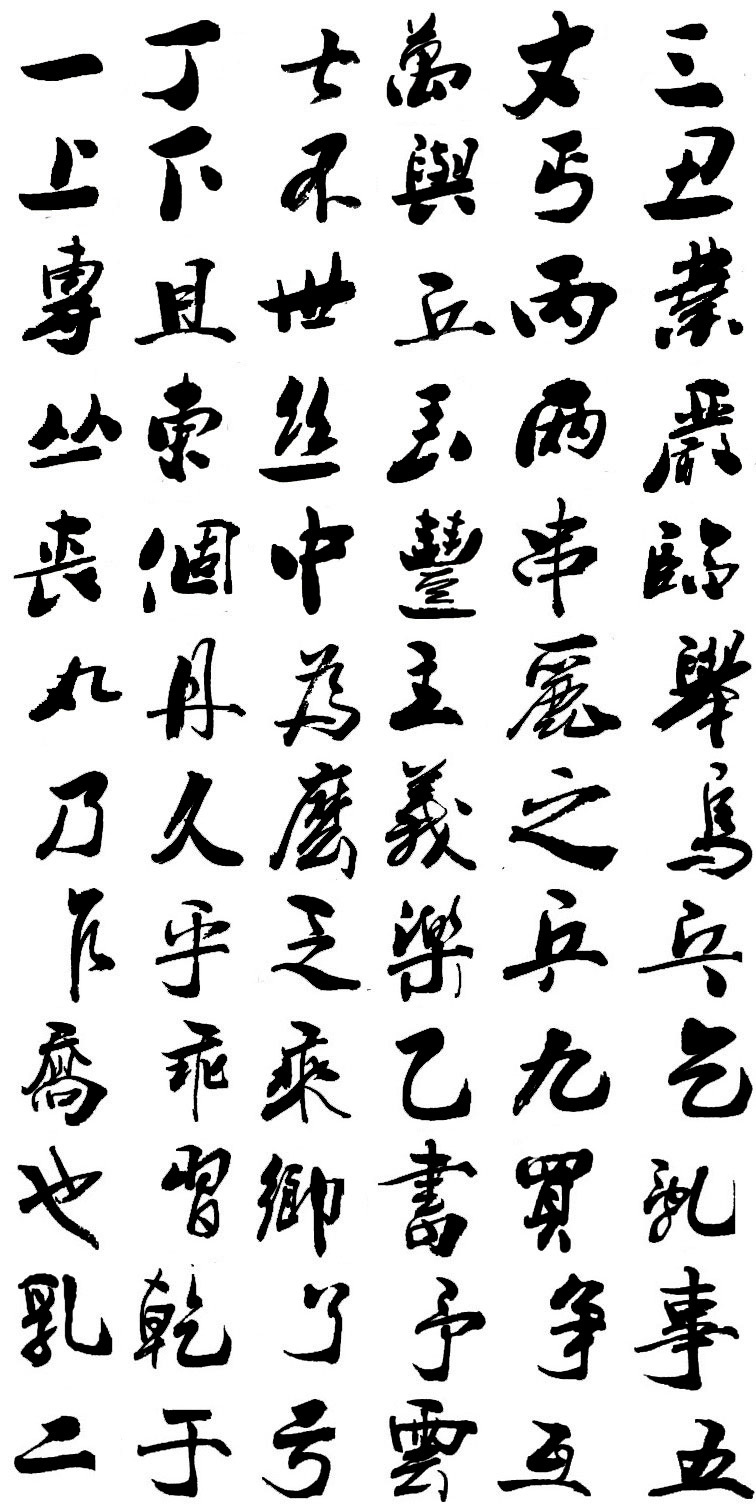 一丁七萬丈三
上下不與丐丑
專且世丘丙業
丛東絲丟兩嚴
喪個中豐串臨
丸丹為主麗舉
乃久麼義之烏
乍乎乏樂乒乓
喬乖乘乙九乞
也習鄉書買亂
乳乾了予爭事
二于亏雲互五